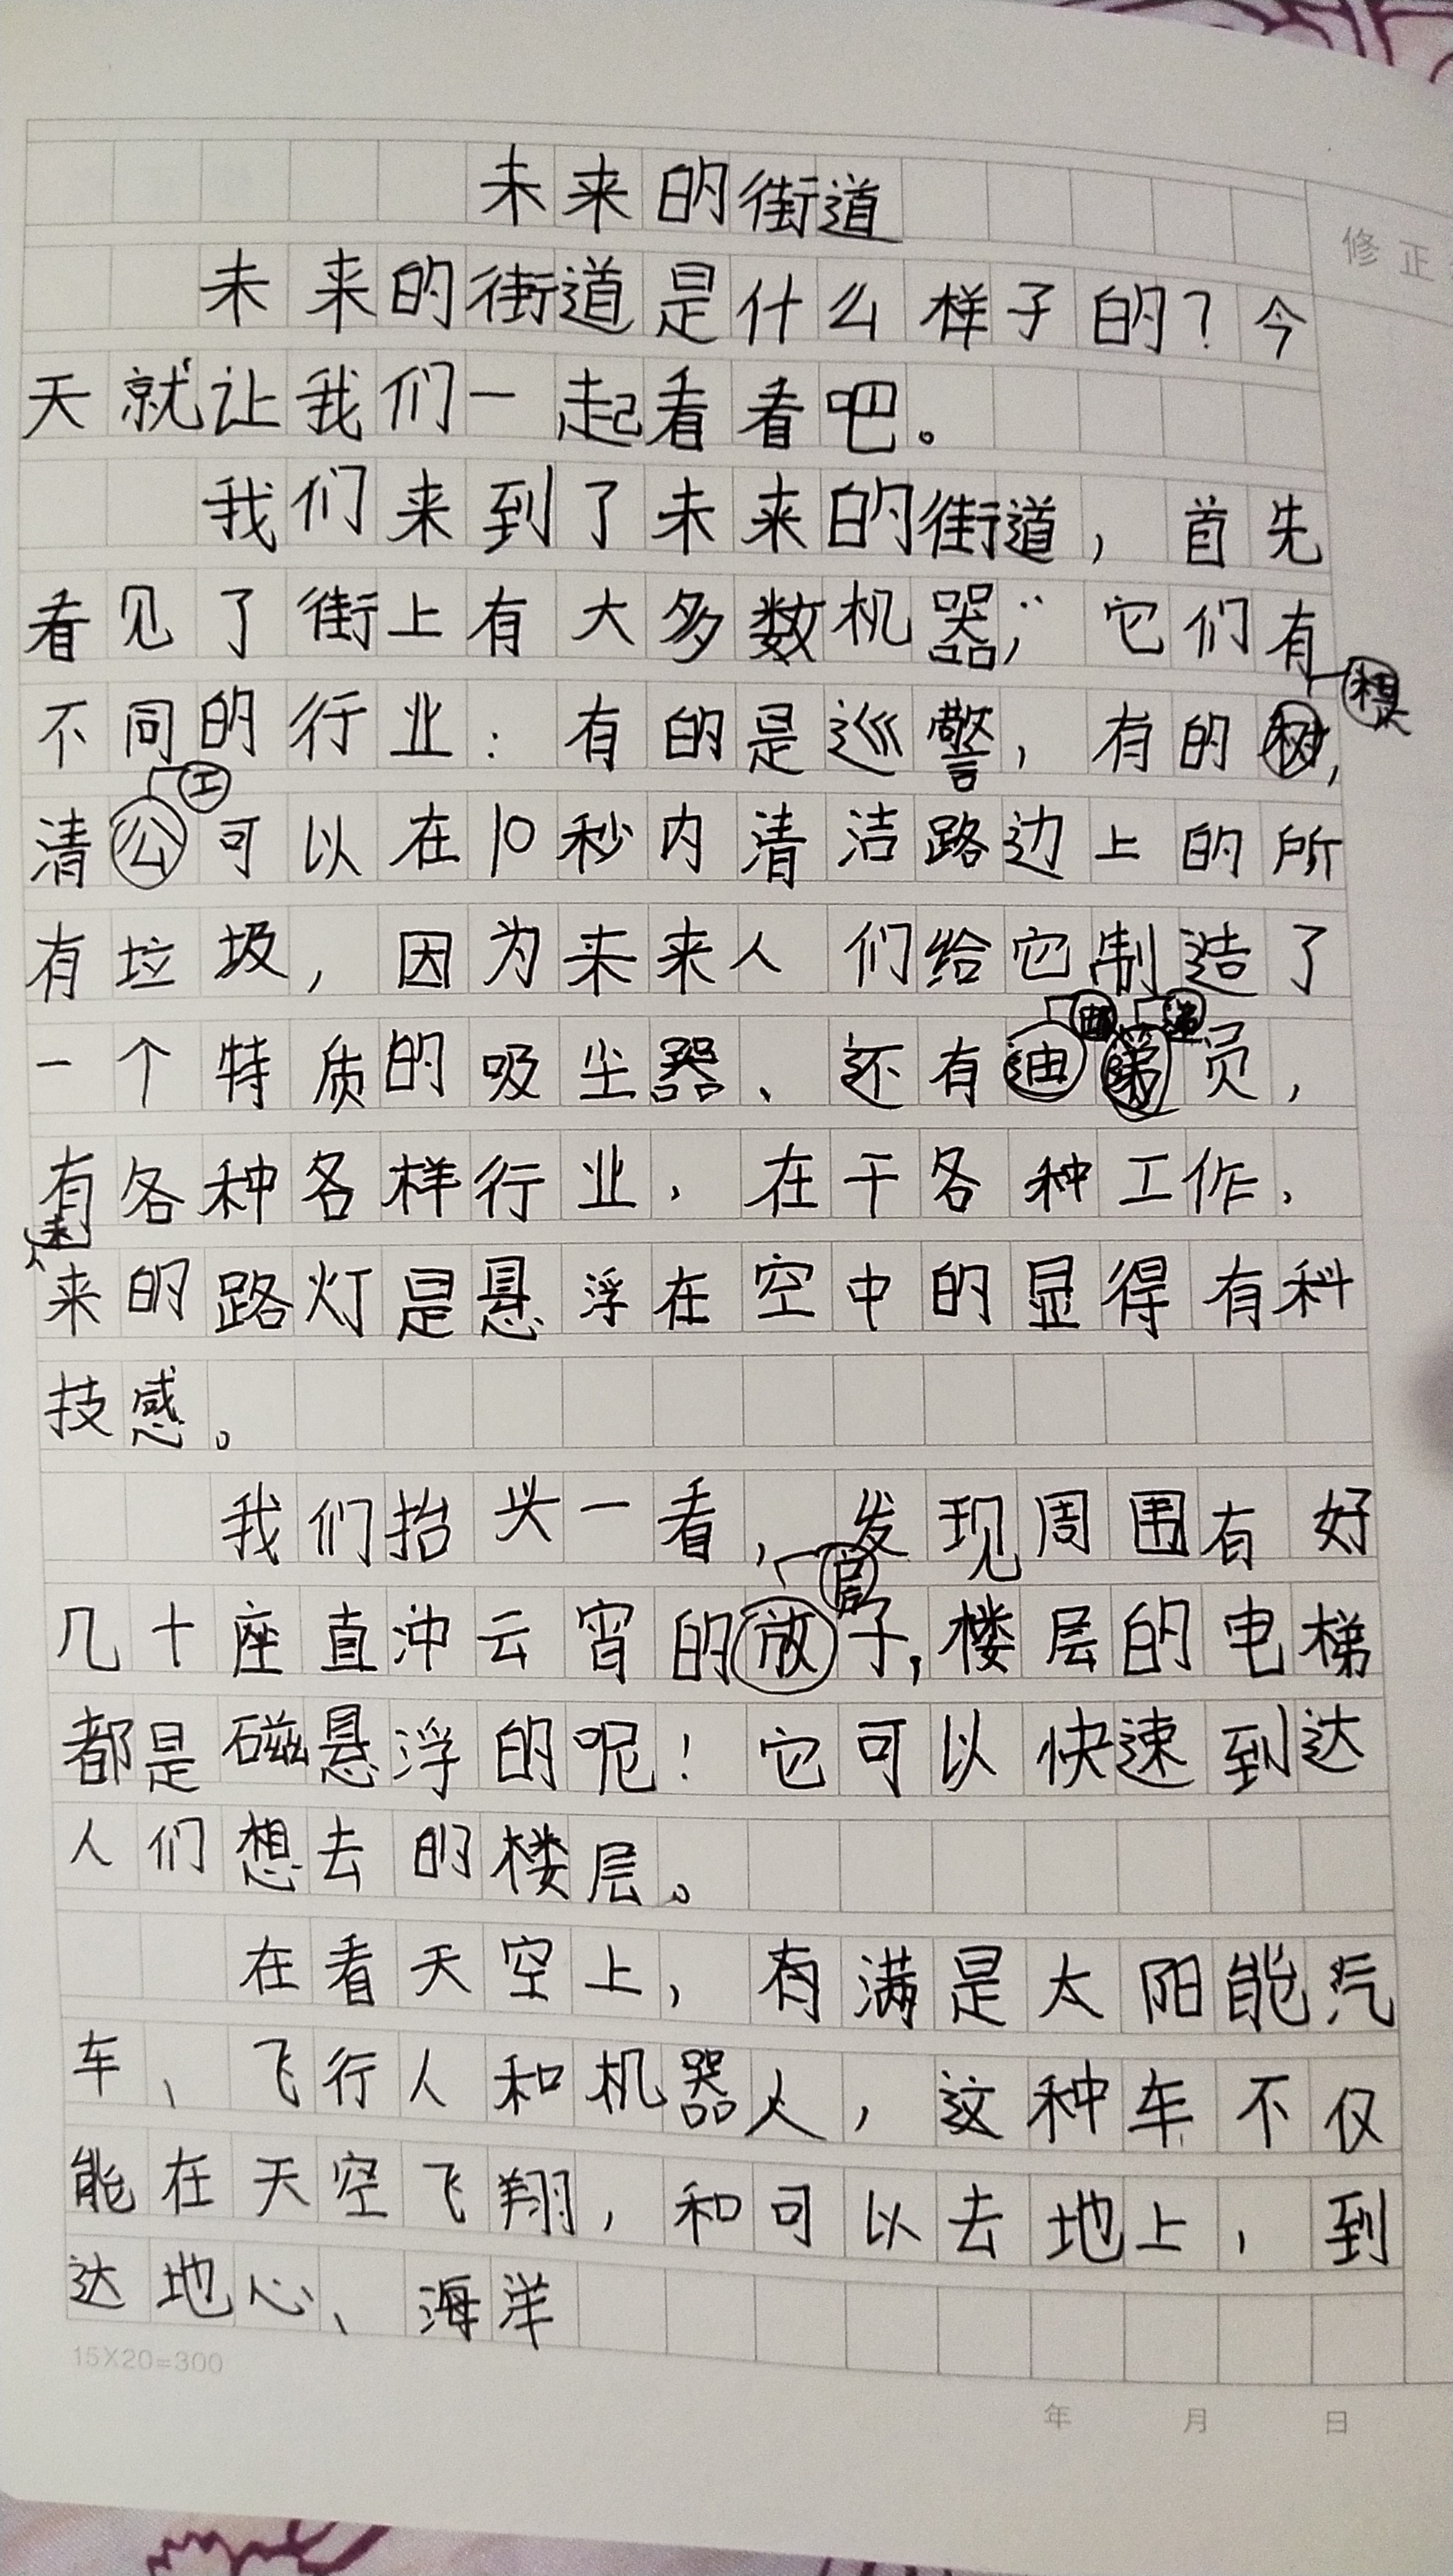 未来的街道
修正
未来的街道是什么样子的？今
天就让我们一起看看吧。
我们来到了未来的街道，首先
看见了街上有大多数机器，它们有
不同的行业：有的是巡警，有的
工
清公可以在10秒内清洁路边上的所
有垃圾，因为未来人们给它制造了
一个特质的吸尘器、还有迪员，
有各种各样行业，在干各种工作，
未
来的路灯是悬浮在空中的显得有科
技感。
我们抬头一看，发现周围有好
房
几十座直冲云宵的放子，楼层的电梯
都是磁悬浮的呢！它可以快速到达
人们想去的楼层。
在看天空上，有满是太阳能汽
车、飞行人和机器人，这种车不仅
能在天空飞翔，和可以去地上，到
达地心、海洋
15X20=300
年 月 日